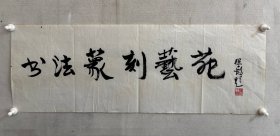 书法篆刻艺苑